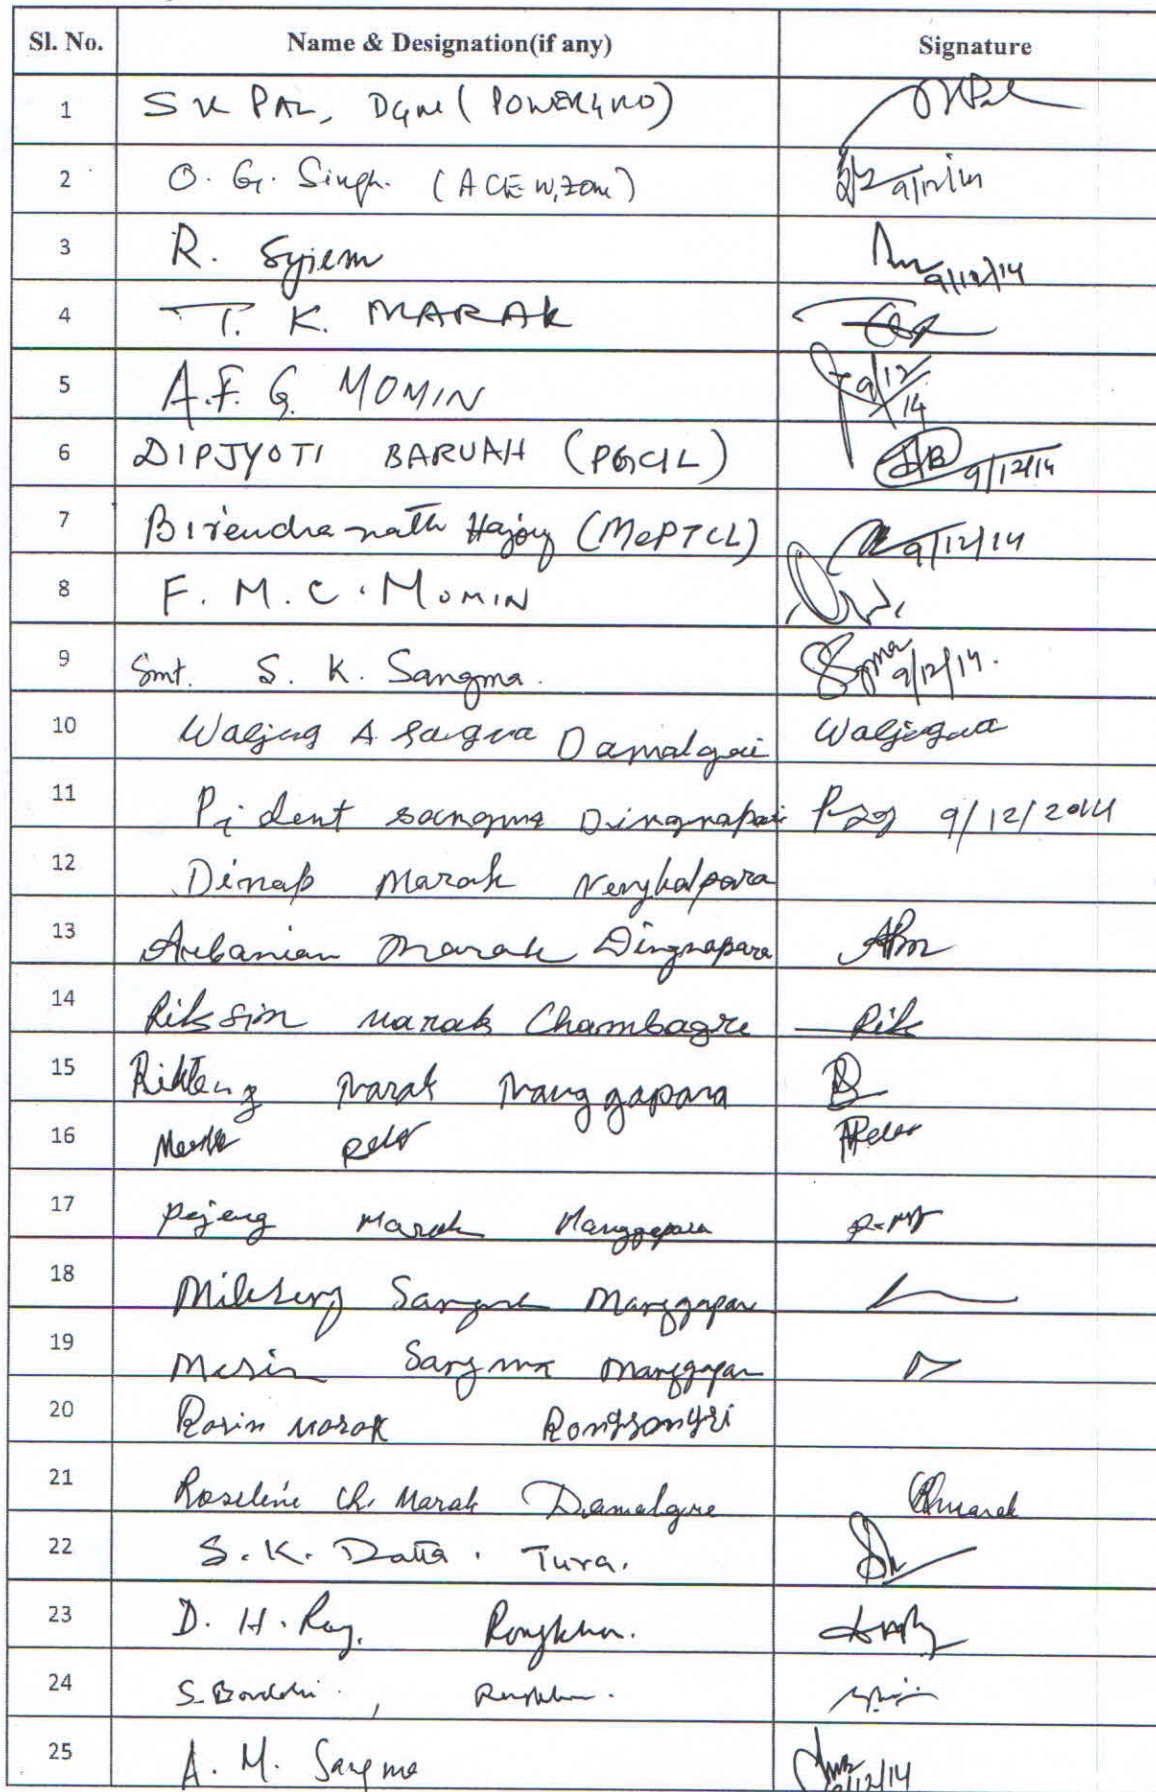 Sl. No. Name & Designation(if any) Signature
1 S K PAL, DGM (POWERGRID)
2 O. G. Singh. (ACE W,Zone) 9/12/14
3 R. Syiem 9/12/14
4 T. K. MARAK
5 A.F. G. MOMIN 9/12/14
6 DIPJYOTI BARUAH (PGCIL) DB 9/12/14
7 Birendra nath Hajong (MePTCL) 9/12/14
8 F. M. C. MOMIN
9 Smt. S. K. Sangma. 9/12/14.
10 Waljeng A Sangma Damalgri
11 Pident sangma Dingnapara 9/12/2014
12 Dinap Marak Nengkalpara
13 Arbanian Marak Dingnapara Abm
14 Rikssim Marak Chambagre Rik
15 Rikteng Marak Manggapara
16
17 Pejeng Marak Manggapara
18 Mikseng Sangma Manggapara
19 Mesin Sangma Manggapara
20 Rosin Marak Rongsongri
21 Roseline Ch. Marak Damalgre
22 S. K. Datta. Tura.
23 D. H. Ray, Rongkhon.
24 S. Bordoloi.,
25 A. M. Sangma 9/12/14